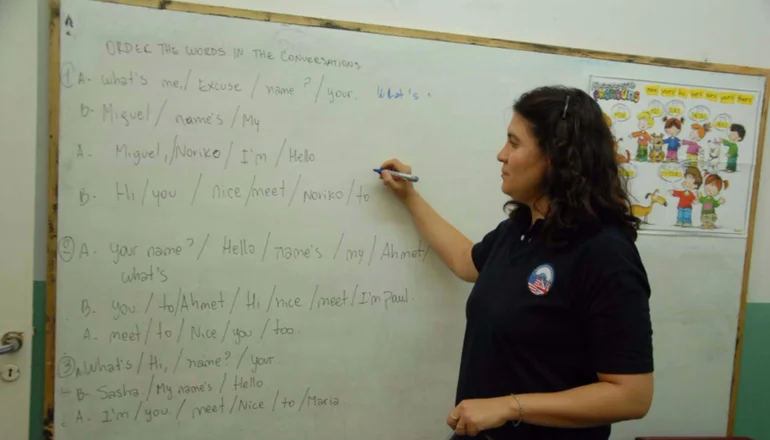 A
ORDER THE WORDS IN THE CONVERSATIONS
1 A- What's me,/ Excuse / name? / your. What's
B- Miguel / name's / My
A. Miguel, / Noriko / I'm / Hello
B- Hi / you / nice / meet / Noriko / to
2 A. your name? / Hello / name's / my / Ahmet /
what's
B. you / to / Ahmet / Hi / nice / meet / I'm Paul.
A. meet / to / Nice / you / too.
3 A. What's / Hi, / name? / your
B- Sasha / My name's / Hello
A. I'm / you / meet / Nice / to / Maria